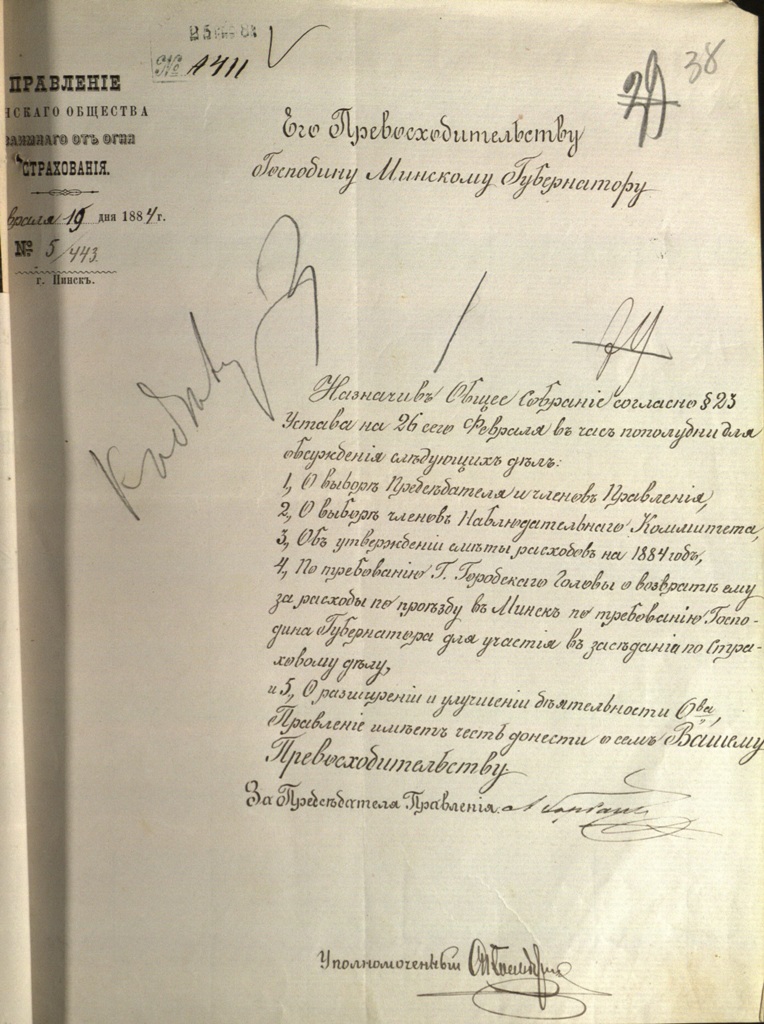 № 1411
29 38
ПРАВЛЕНІЕ
НСКАГО ОБЩЕСТВА
ВЗАИМНАГО ОТЪ ОГНЯ
СТРАХОВАНІЯ.
враля 19 дня 1884 г.
№ 5/443
г. Пинскъ.
Его Превосходительству
Господину Минскому Губернатору
Назначивъ Общее Собраніе согласно § 23
Устава на 26 сего Февраля въ часъ пополудни для
обсужденія слѣдующихъ дѣлъ:
1, О выборѣ Предсѣдателя и членовъ Правленія,
2, О выборѣ членовъ Наблюдательнаго Коммитета,
3, Объ утвержденіи смѣты расходовъ на 1884 годъ,
4, По требованію Г. Городскаго Головы о возвратѣ ему
за расходы по проѣзду въ Минскъ по требованію Госпо-
дина Губернатора для участія въ засѣданіи по Стра-
ховому дѣлу,
и 5, О разширеніи и улучшеніи дѣятельности Ова
Правленіе имѣетъ честь донести о семъ Вашему
Превосходительству
За Предсѣдателя Правленія
Уполномоченный